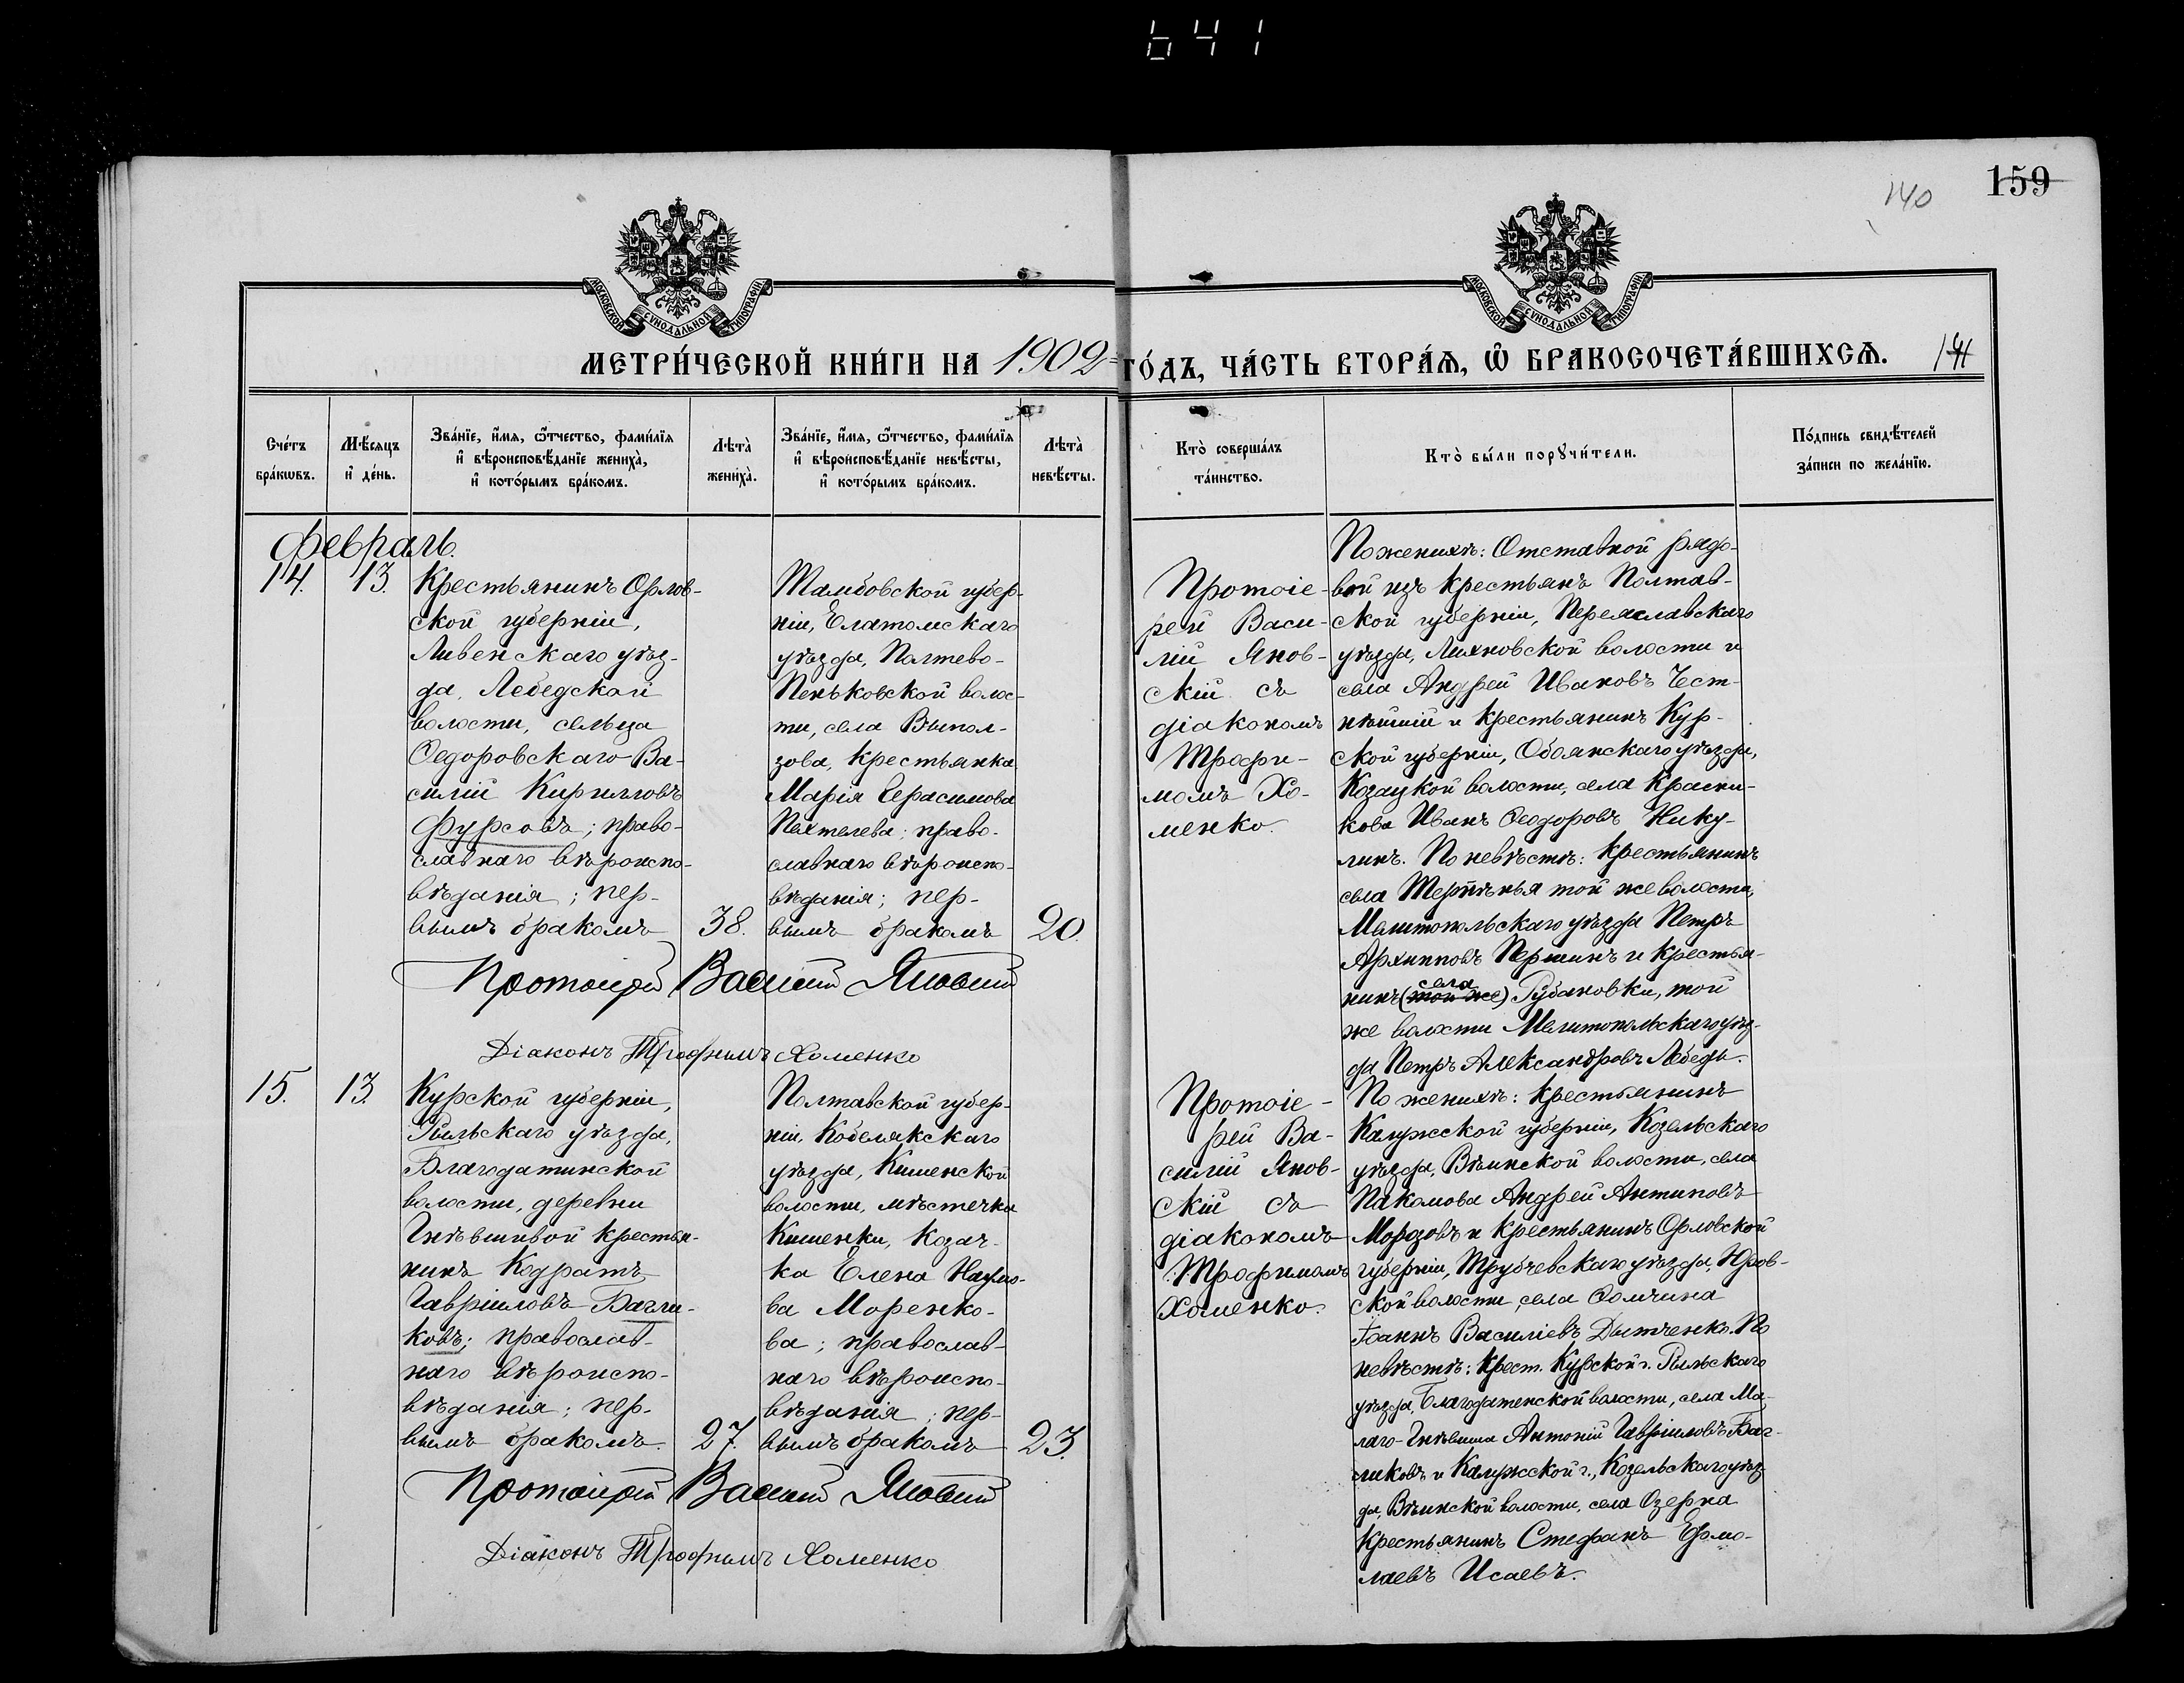 641
159
140
МОСКОВСКОЙ СѴНОДАЛЬНОЙ ТИПОГРАФІИ
МОСКОВСКОЙ СѴНОДАЛЬНОЙ ТИПОГРАФІИ
МЕТРИ́ЧЕСКОЙ КНИ́ГИ НА 1902 ГО́ДЪ, ЧА́СТЬ ВТОРА́Ѧ, Ѽ БРАКОСОЧЕТА́ВШИХСѦ.
141
Сче́тъ
бра́кѡвъ.
Мѣ́сяцъ
и҆ де́нь.
Зва́нїе, и҆́мя, ѻ҆́тчество, фами́лїя
и҆ вѣроисповѣ́данїе жениха̀,
и҆ кото́рымъ бра́комъ.
Лѣта̀
жениха̀.
Зва́нїе, и҆́мя, ѻ҆́тчество, фами́лїя
и҆ вѣроисповѣ́данїе невѣ́сты,
и҆ кото́рымъ бра́комъ.
Лѣта̀
невѣ́сты.
Кто̀ соверша́лъ
та́инство.
Кто̀ бы́ли порꙋчи́тели.
По́дпись свидѣ́телей
за́писи по жела́нїю.
Февраль.
14.
13.
Крестьянинъ Орлов-
ской губерніи,
Ливенскаго уѣз-
да, Лебедской
волости, сельца
Ѳедоровскаго Ва-
силій Кирилловъ
Фурсовъ; право-
славнаго вѣроиспо-
вѣданія; пер-
вымъ бракомъ
38.
Тамбовской губер-
ніи, Елатомскаго
уѣзда, Полтево-
Пеньковской волос-
ти, села Выпол-
зова, крестьянка
Марія Герасимова
Пехтелева; право-
славнаго вѣроиспо-
вѣданія; пер-
вымъ бракомъ
20.
Протоіе-
рей Васи-
лій Янов-
скій съ
діакономъ
Трофи-
момъ Хо-
менко.
По женихѣ: Отставной рядо-
вой изъ крестьянъ Полтав-
ской губерніи, Переяславскаго
уѣзда, Лихновской волости и
села Андрей Ивановъ Чест-
нѣйшій и крестьянинъ Кур-
ской губерніи, Обоянскаго уѣзда,
Козацкой волости, села Красни-
кова Иванъ Ѳеодоровъ Нику-
линъ. По невѣстѣ: крестьянинъ
села Терпѣнья той же волости,
Мелитопольскаго уѣзда Петръ
Архиповъ Першинъ и крестья-
нинъ (той же) села Рубановки, той
же волости Мелитопольскаго уѣз-
да Петръ Александровъ Лебедь.
Протоіерей Василій Яновскій
Діаконъ Трофимъ Хоменко
15.
13.
Курской губерніи,
Рыльскаго уѣзда,
Благодатинской
волости, деревни
Гнѣвшивой крестья-
нинъ Кодратъ
Гавріиловъ Багли-
ковъ; православ-
наго вѣроиспо-
вѣданія; пер-
вымъ бракомъ.
27.
Полтавской губер-
ніи, Кобелякскаго
уѣзда, Кишенской
волости, мѣстечка
Кишенки, козач-
ка Елена Наумо-
ва Моренко-
ва; православ-
наго вѣроиспо-
вѣданія; пер-
вымъ бракомъ
23.
Протоіе-
рей Ва-
силій Янов-
скій съ
діакономъ
Трофимомъ
Хоменко.
По женихѣ: крестьянинъ
Калужской губерніи, Козельскаго
уѣзда, Вѣинской волости, села
Пахомова Андрей Антиповъ
Морозовъ и крестьянинъ Орловской
губерніи, Трубчевскаго уѣзда, Юров-
ской волости, села Ѳомчина
Іоаннъ Василіевъ Дытченко. По
невѣстѣ: крест. Курской г. Рыльскаго
уѣзда, Благодатенской волости, села Ма-
лаго-Гнѣвыша Антоній Гавріиловъ Баг-
ликовъ и Калужской г., Козельскаго уѣз-
да, Вѣинской волости, села Озерна
крестьянинъ Стефанъ Ермо-
лаевъ Исаевъ.
Протоіерей Василій Яновскій
Діаконъ Трофимъ Хоменко